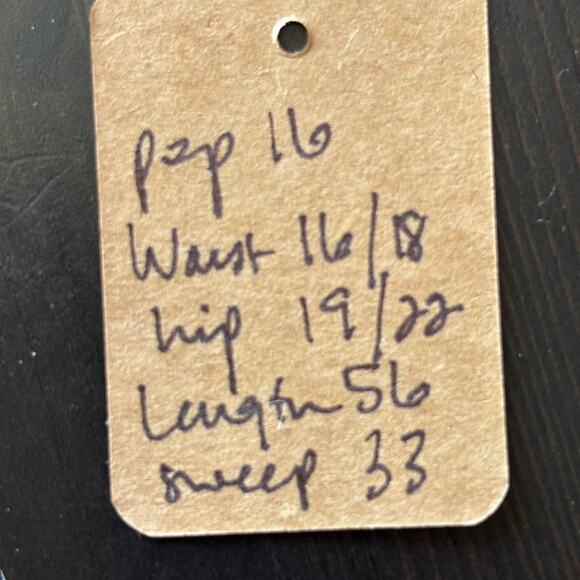 p2p 16
Waist 16/18
hip 19/22
Length 56
sweep 33